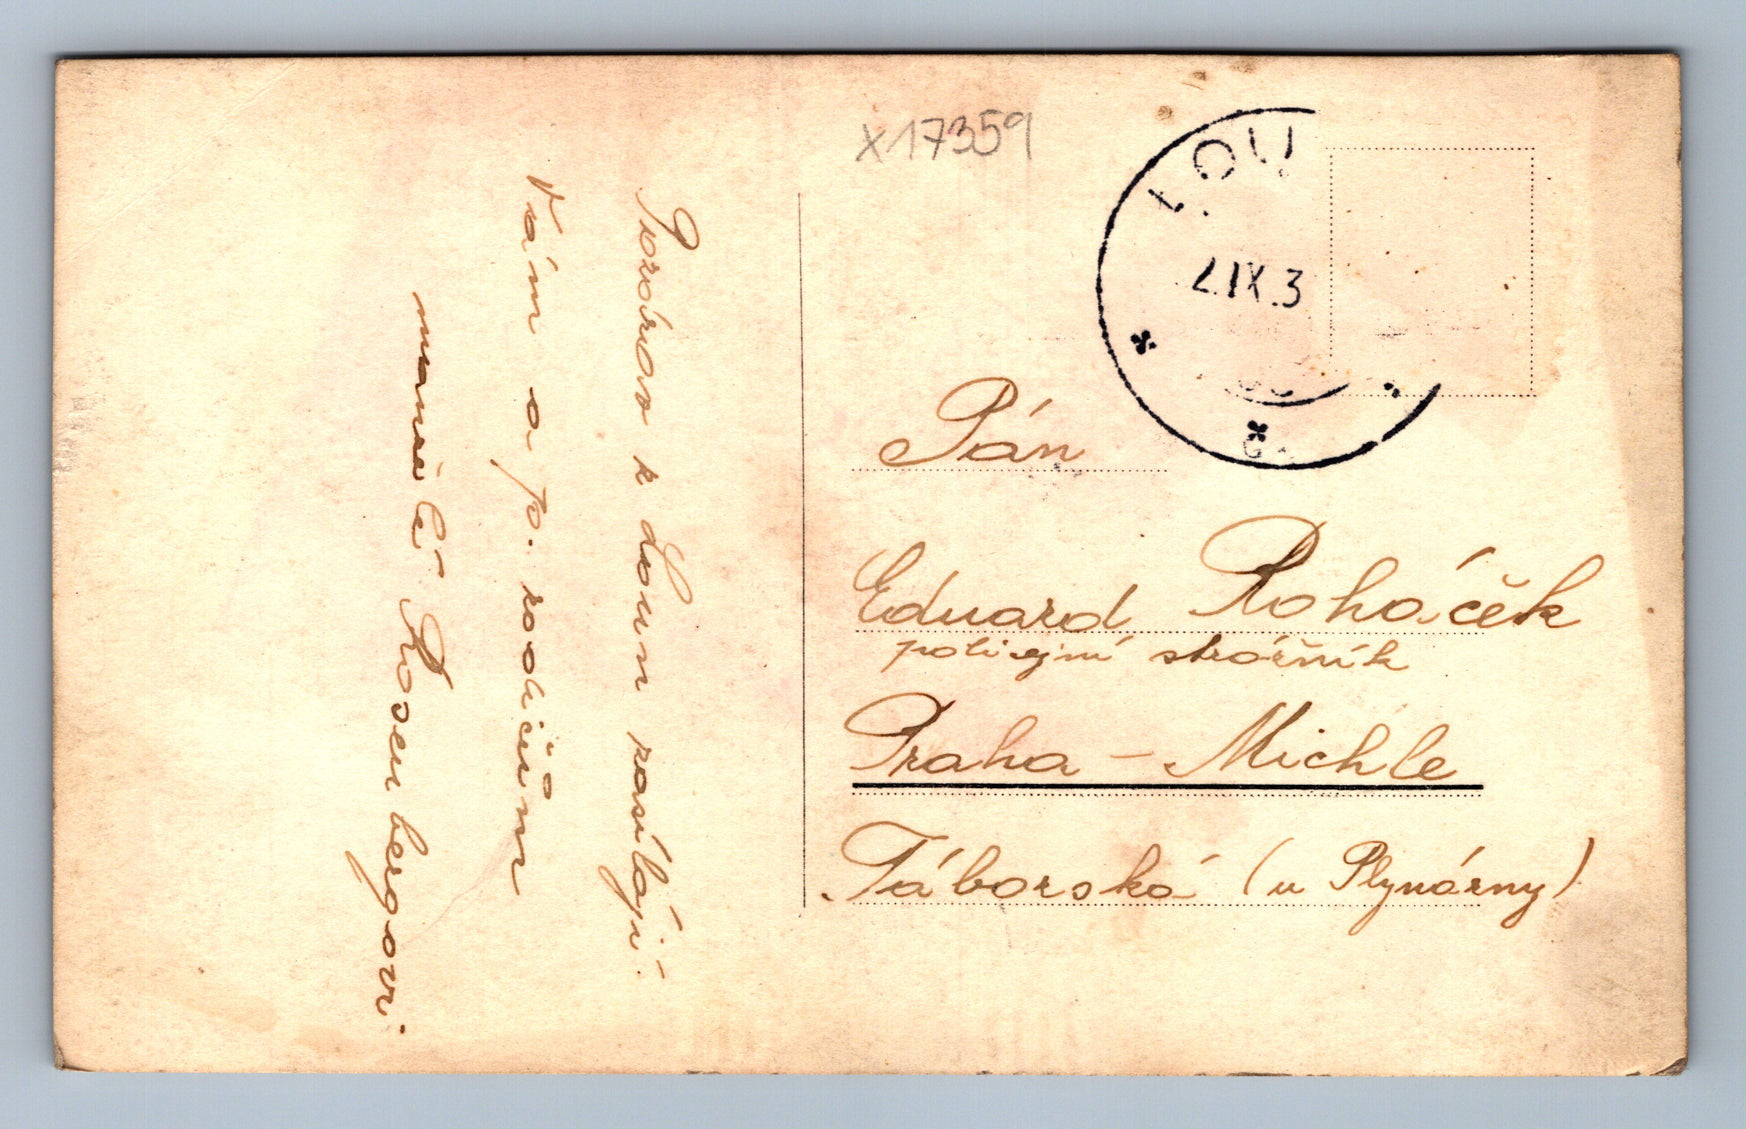 X17359
LOU
2.IX.3
Pozdrav z Loun zasílají
Vám a p. rodičům
manželé Rosenbergovi.
Pán
Eduard Roháček
policejní strážník
Praha - Michle
Táborská (u Plynárny)